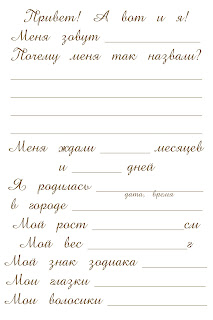 Привет! А вот и я!
Меня зовут
Почему меня так назвали?
Меня ждали месяцев
и дней
Я родилась
дата, время
в городе
Мой рост см
Мой вес г
Мой знак зодиака
Мои глазки
Мои волосики